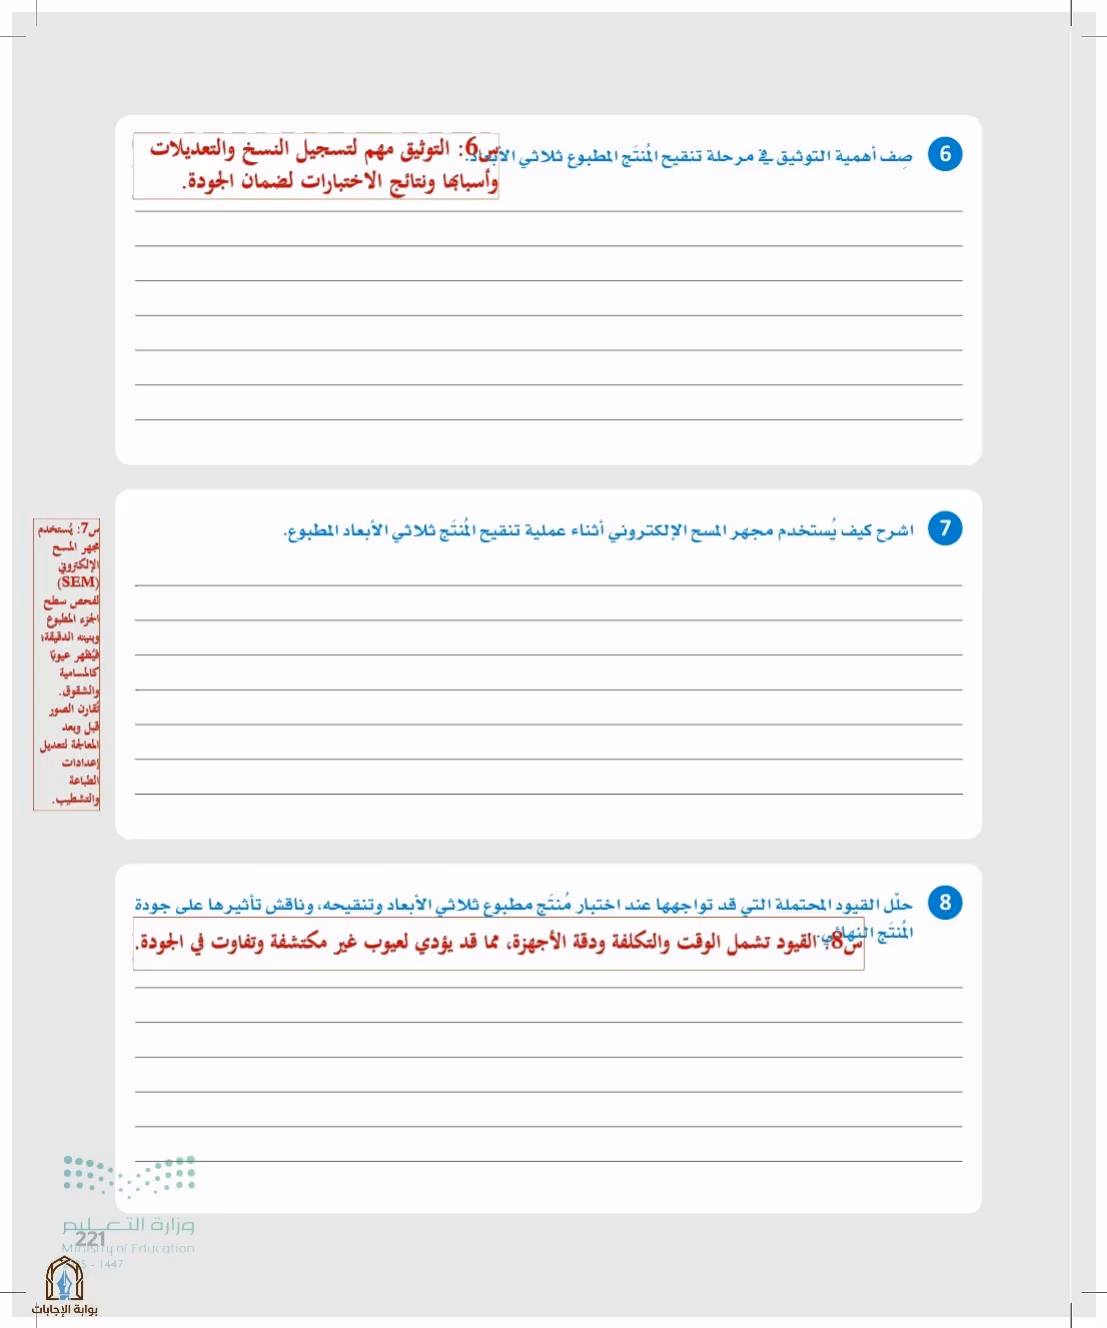 6
صِف أهمية التوثيق في مرحلة تنقيح المُنتَج المطبوع ثلاثي الأبعاد.
س6: التوثيق مهم لتسجيل النسخ والتعديلات
وأسبابها ونتائج الاختبارات لضمان الجودة.
7
اشرح كيف يُستخدم مجهر المسح الإلكتروني أثناء عملية تنقيح المُنتَج ثلاثي الأبعاد المطبوع.
س7: يُستخدم
مجهر المسح
الإلكتروني
(SEM)
لفحص سطح
الجزء المطبوع
وبنيته الدقيقة؛
فيُظهر عيوبًا
كالمسامية
والشقوق.
تُقارن الصور
قبل وبعد
المعالجة لتعديل
إعدادات
الطباعة
والتشطيب.
8
حلّل القيود المحتملة التي قد تواجهها عند اختبار مُنتَج مطبوع ثلاثي الأبعاد وتنقيحه، وناقش تأثيرها على جودة
المُنتَج النهائي.
س8: القيود تشمل الوقت والتكلفة ودقة الأجهزة، مما قد يؤدي لعيوب غير مكتشفة وتفاوت في الجودة.
وزارة التعليم
221
Ministry of Education
5 - 1447
بوابة الإجابات